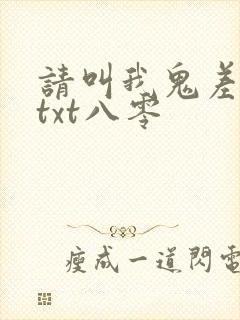 請叫我鬼差
txt八零
瘦成一道閃電